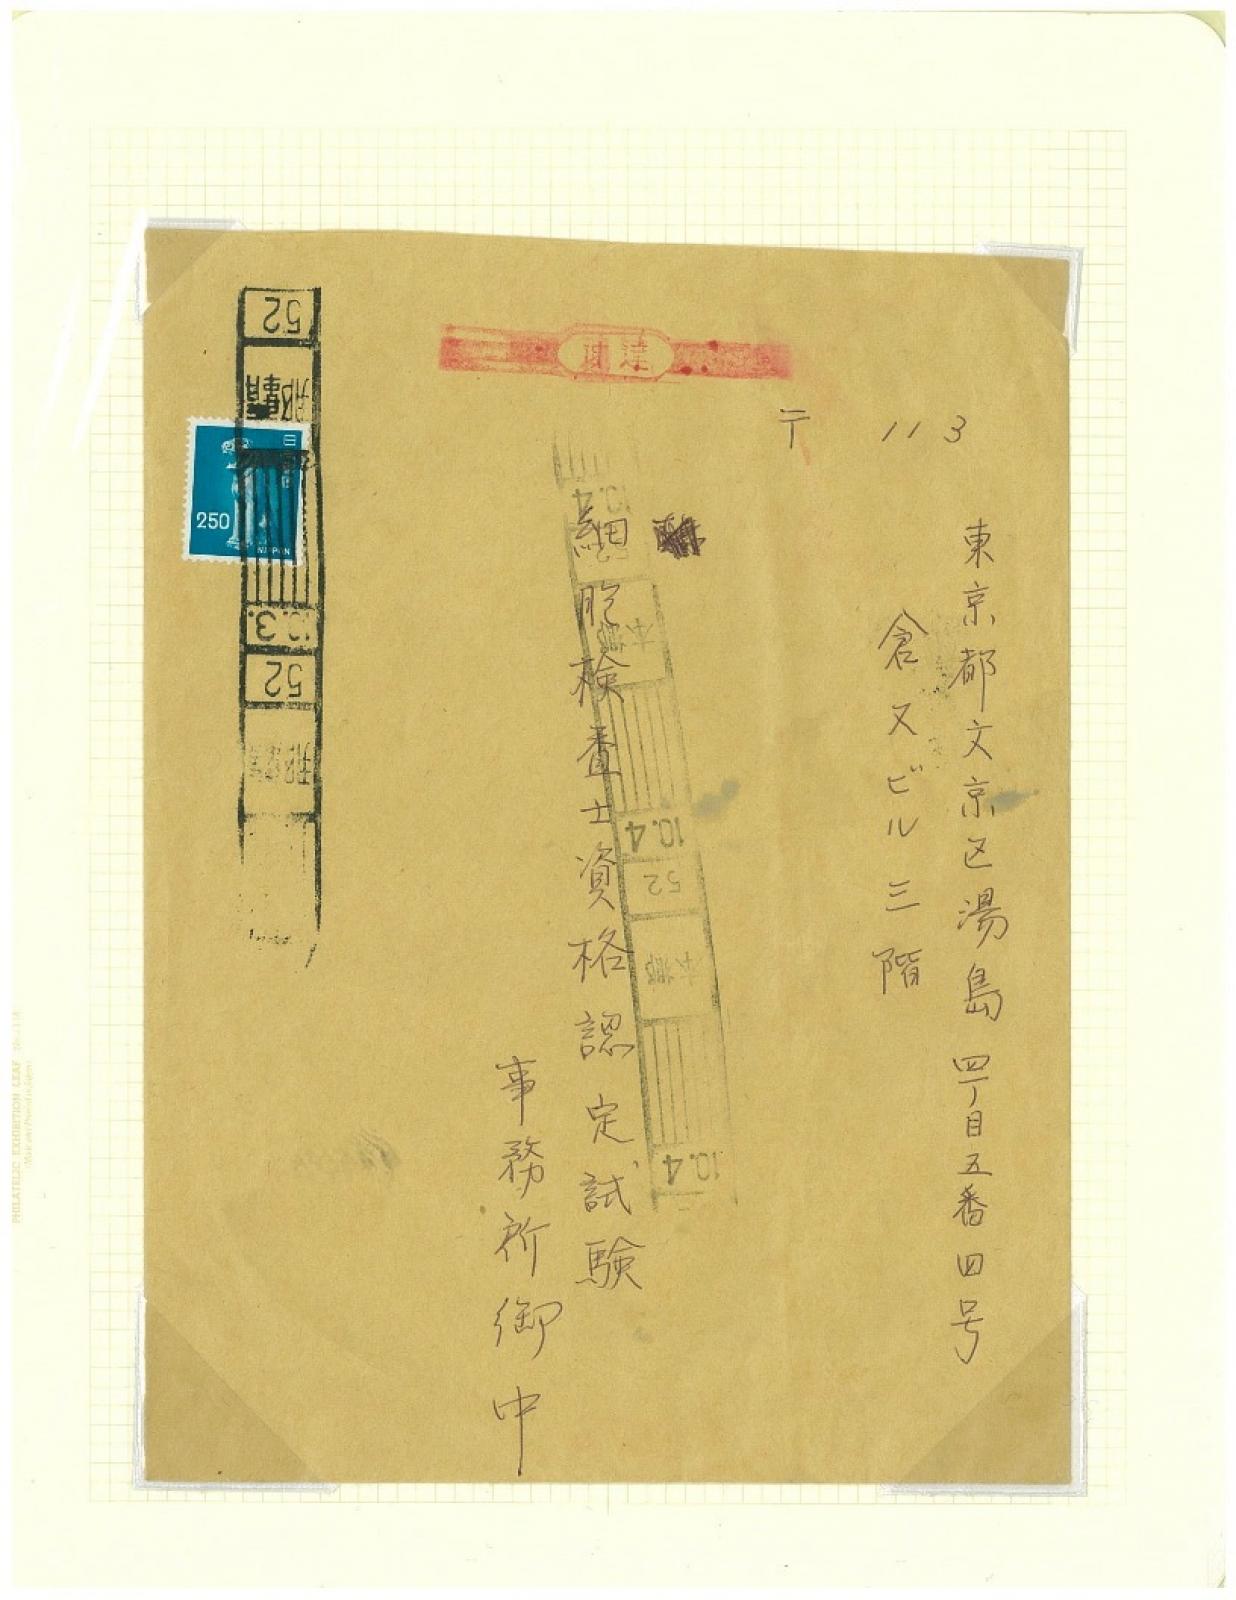 速達
〒 113
東京都文京区湯島四丁目五番四号
倉又ビル三階
細胞検査士資格認定試験
事務所御中
52
那覇
日本郵便
250
NIPPON
10.3.
52
那覇
10.4
52
本郷
10.4
52
本郷
10.4
PHILATELIC EXHIBITION LEAF